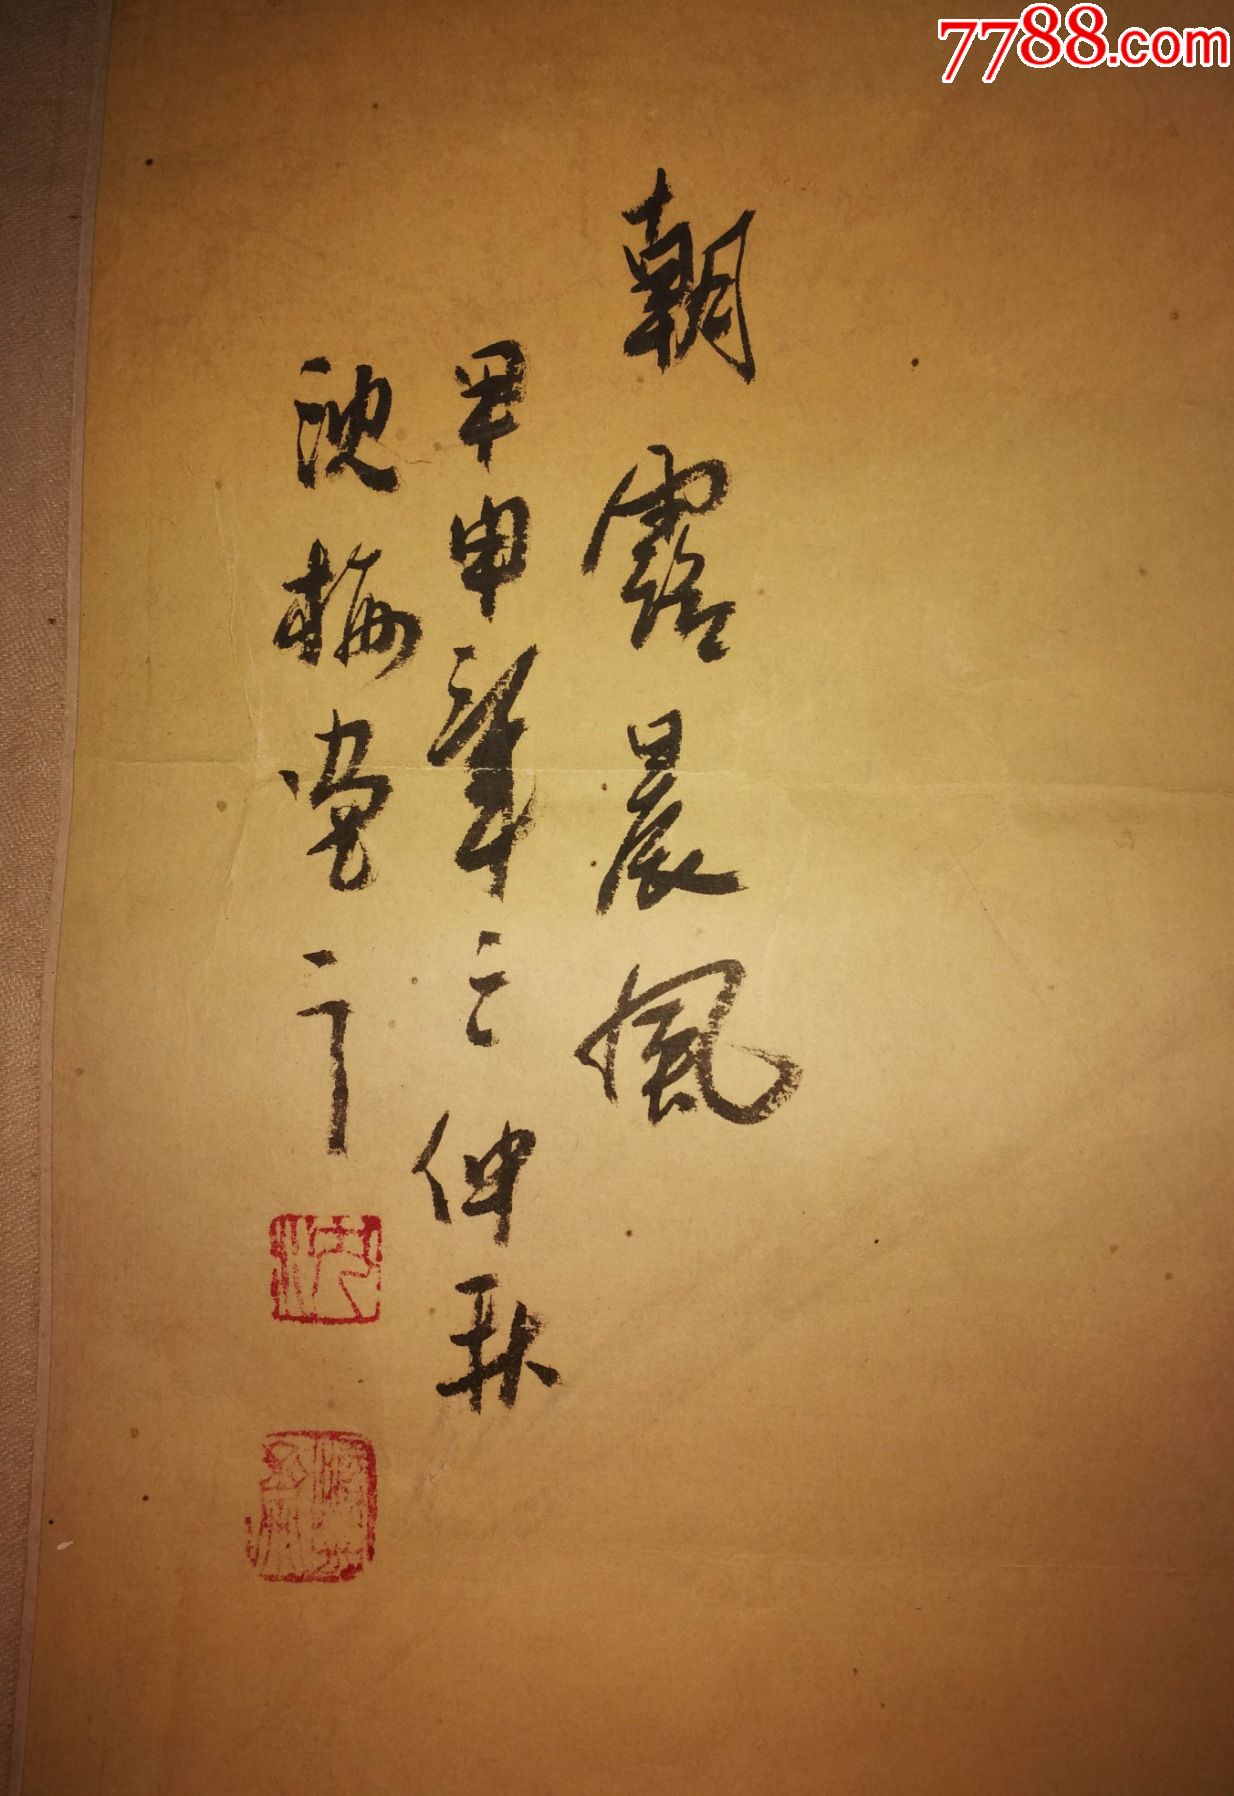 7788.com
朝露晨風
甲申年之仲秋
沈梅
沈